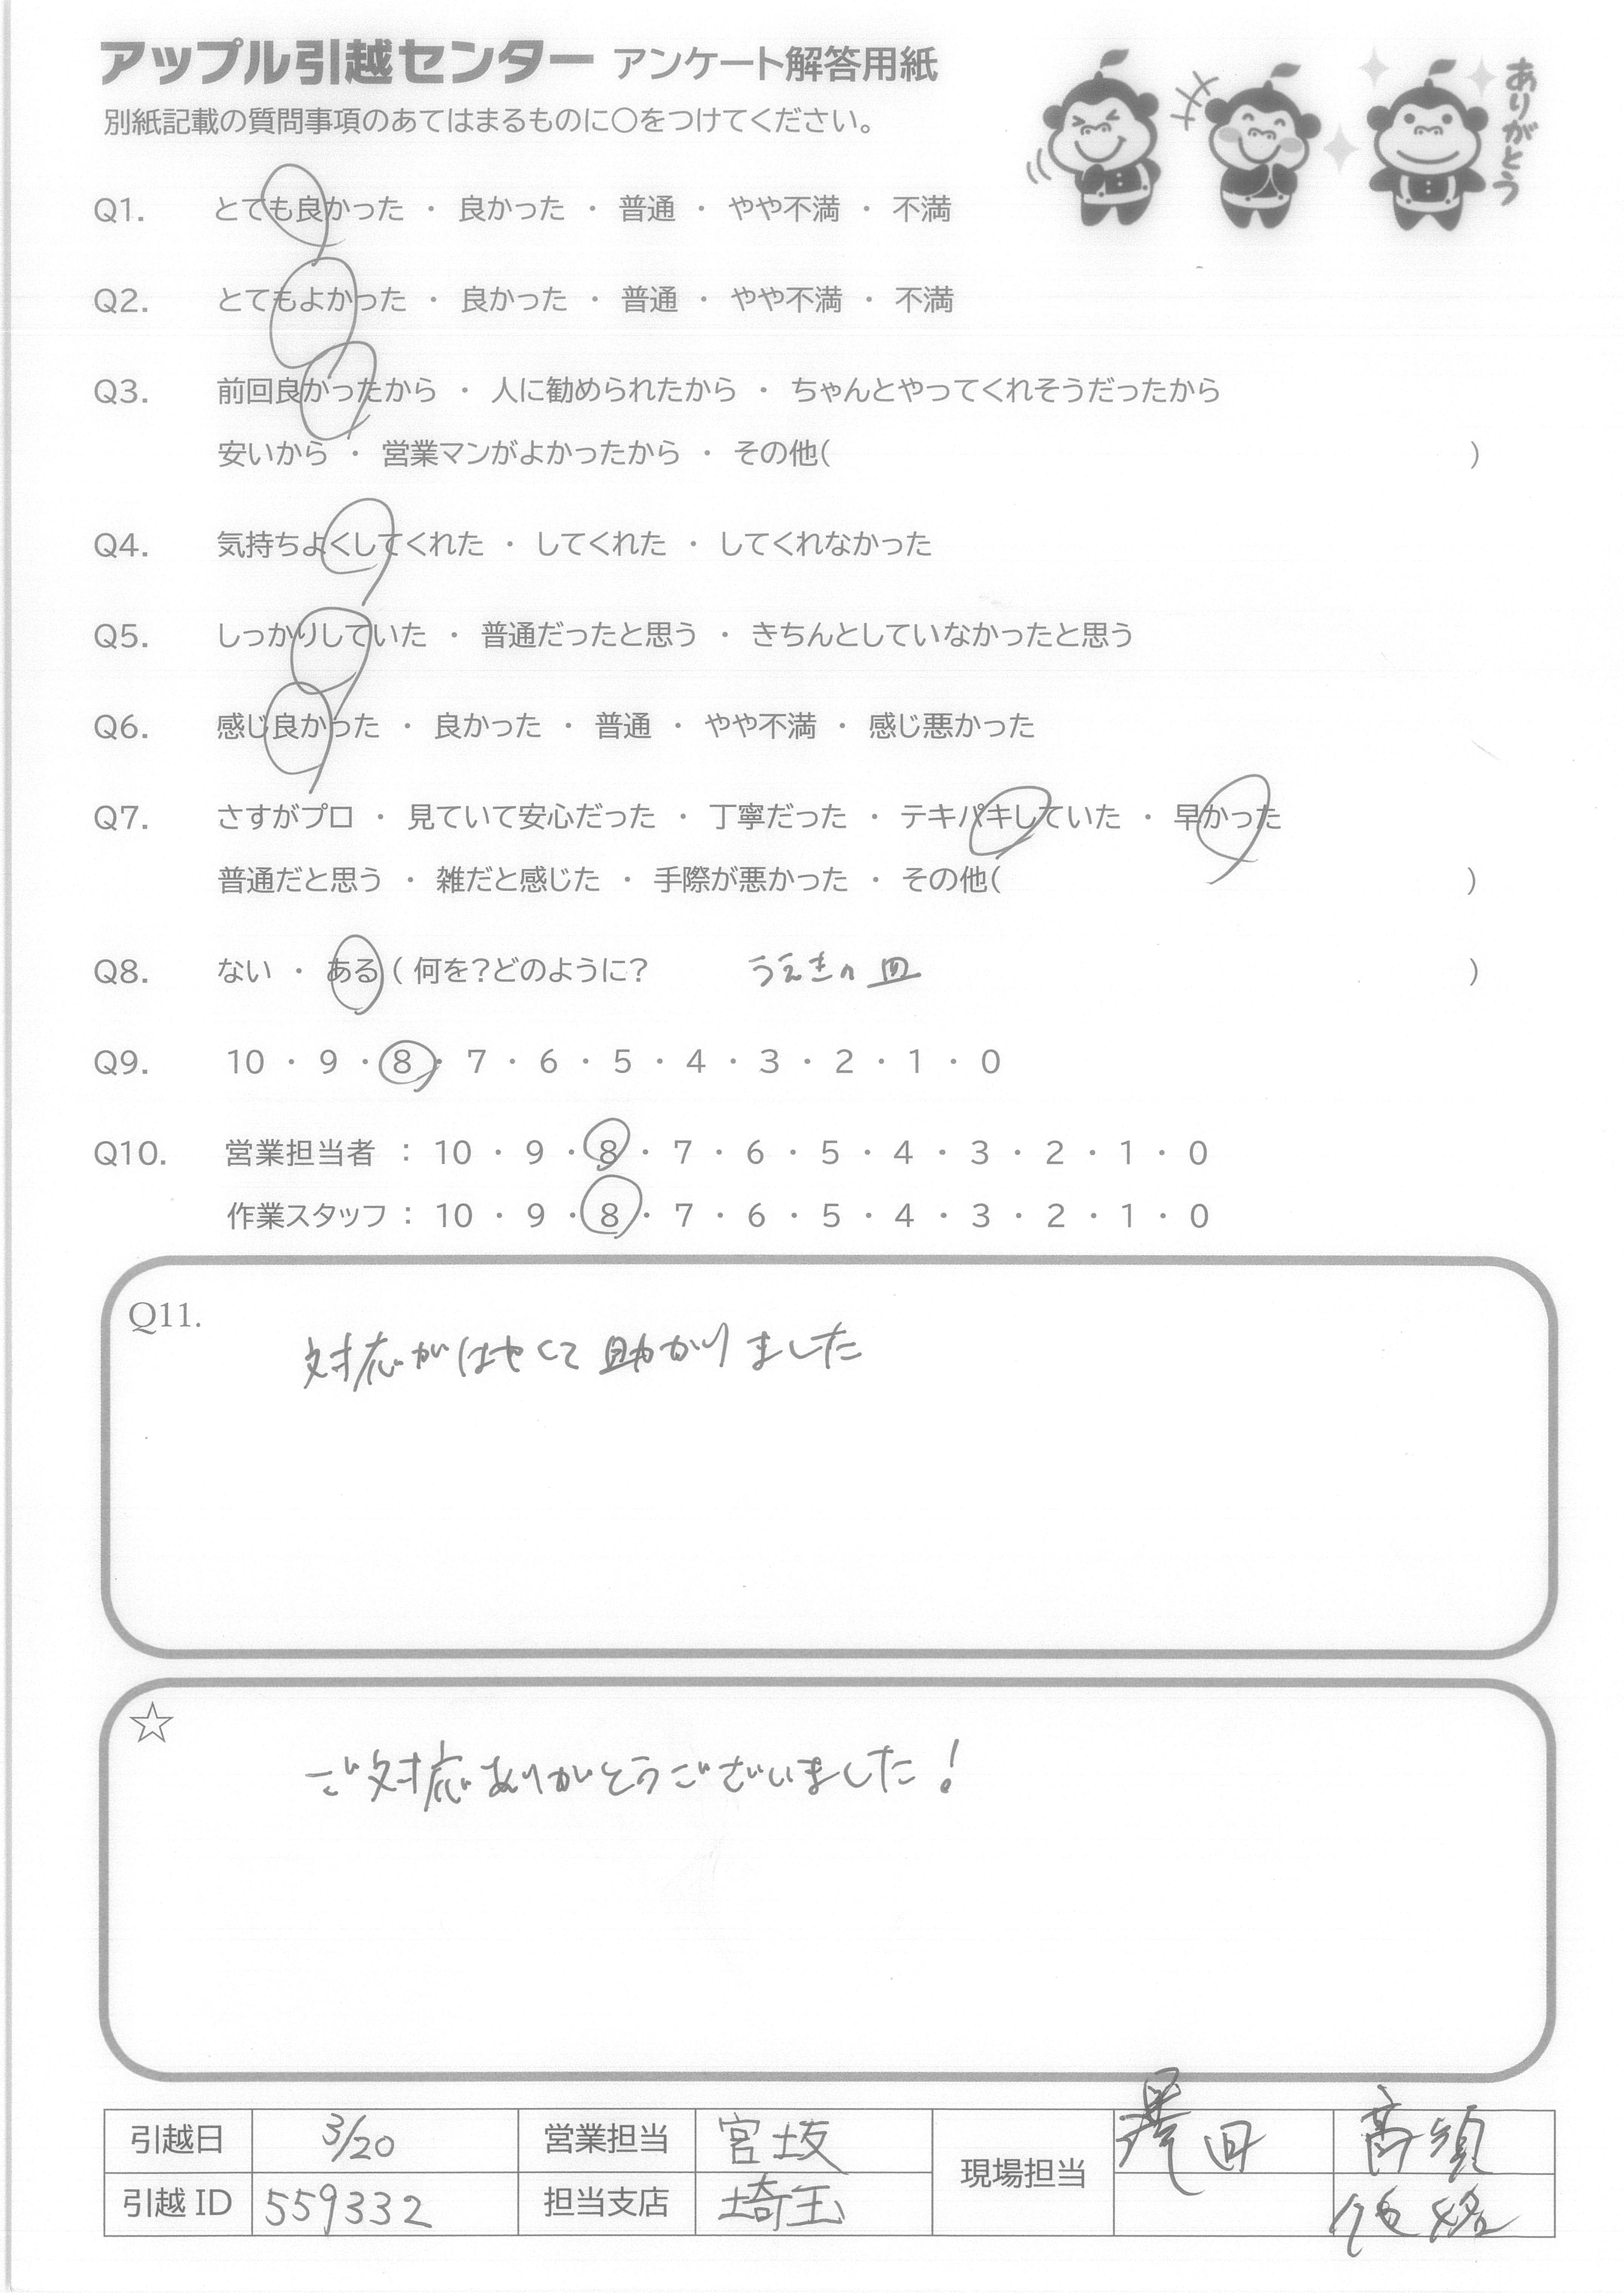 アップル引越センター アンケート解答用紙
ありがとう
別紙記載の質問事項のあてはまるものに〇をつけてください。
Q1. とても良かった ・ 良かった ・ 普通 ・ やや不満 ・ 不満
Q2. とてもよかった ・ 良かった ・ 普通 ・ やや不満 ・ 不満
Q3. 前回良かったから ・ 人に勧められたから ・ ちゃんとやってくれそうだったから
安いから ・ 営業マンがよかったから ・ その他( )
Q4. 気持ちよくしてくれた ・ してくれた ・ してくれなかった
Q5. しっかりしていた ・ 普通だったと思う ・ きちんとしていなかったと思う
Q6. 感じ良かった ・ 良かった ・ 普通 ・ やや不満 ・ 感じ悪かった
Q7. さすがプロ ・ 見ていて安心だった ・ 丁寧だった ・ テキパキしていた ・ 早かった
普通だと思う ・ 雑だと感じた ・ 手際が悪かった ・ その他( )
Q8. ない ・ ある ( 何を?どのように? うえきの皿 )
Q9. 10 ・ 9 ・ 8 ・ 7 ・ 6 ・ 5 ・ 4 ・ 3 ・ 2 ・ 1 ・ 0
Q10. 営業担当者 : 10 ・ 9 ・ 8 ・ 7 ・ 6 ・ 5 ・ 4 ・ 3 ・ 2 ・ 1 ・ 0
作業スタッフ : 10 ・ 9 ・ 8 ・ 7 ・ 6 ・ 5 ・ 4 ・ 3 ・ 2 ・ 1 ・ 0
Q11.
対応がはやくて助かりました
☆
ご対応ありがとうございました!
引越日 3/20 営業担当 宮坂 現場担当 澤田
引越 ID 559332 担当支店 埼玉